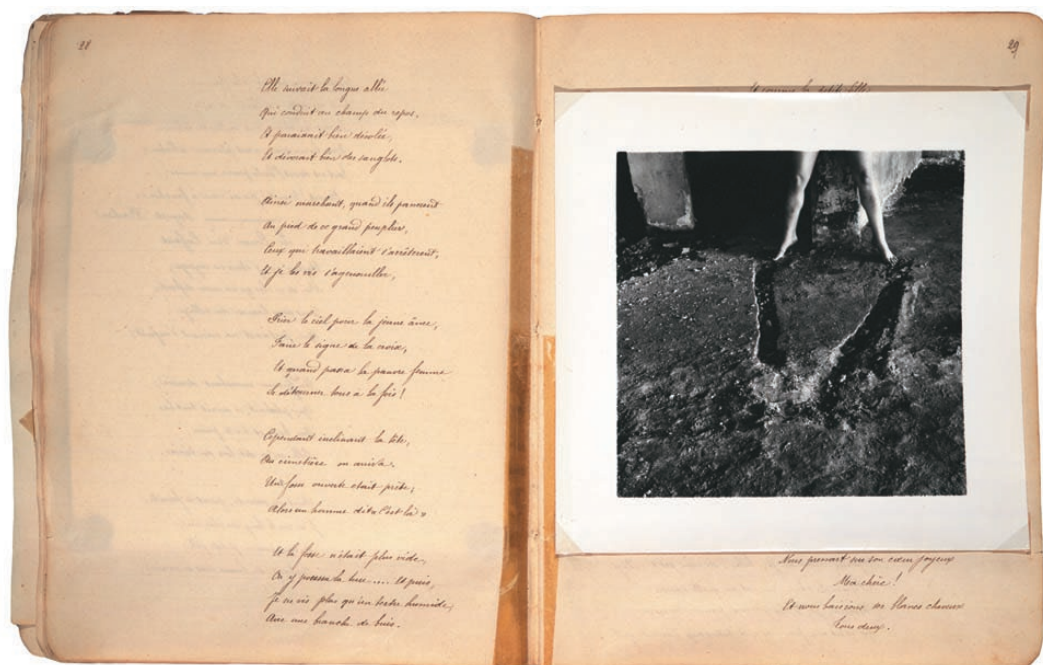 28
Elle suivait la longue allée
Qui conduit au champ du repos,
Et paraissait bien désolée,
Et dévorait bien des sanglots.
Ainsi marchant, quand ils passèrent
Au pied de ce grand peuplier,
Ceux qui travaillaient s'arrêtèrent,
Et je les vis s'agenouiller,
Prier le ciel pour la jeune âme,
Faire le signe de la croix,
Et quand passa la pauvre femme
Se détourner tous à la fois!
Cependant inclinant la tête,
Au cimetière on arriva.
Une fosse ouverte était prête,
Alors un homme dit « C'est là »
Et la fosse n'était plus vide,
On y poussa la terre.... Et puis,
Je ne vis plus qu'un tertre humide,
Avec une branche de buis.
29
Et comme la petite fille
Nous prenant sur son cœur joyeux
Ma chère!
Et nous baisions ses blancs cheveux
Tous deux.